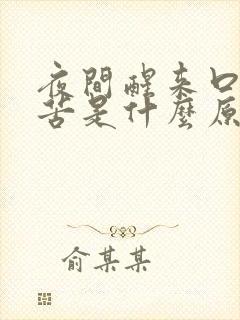 夜間醒來口
苦是什麼原
俞某某